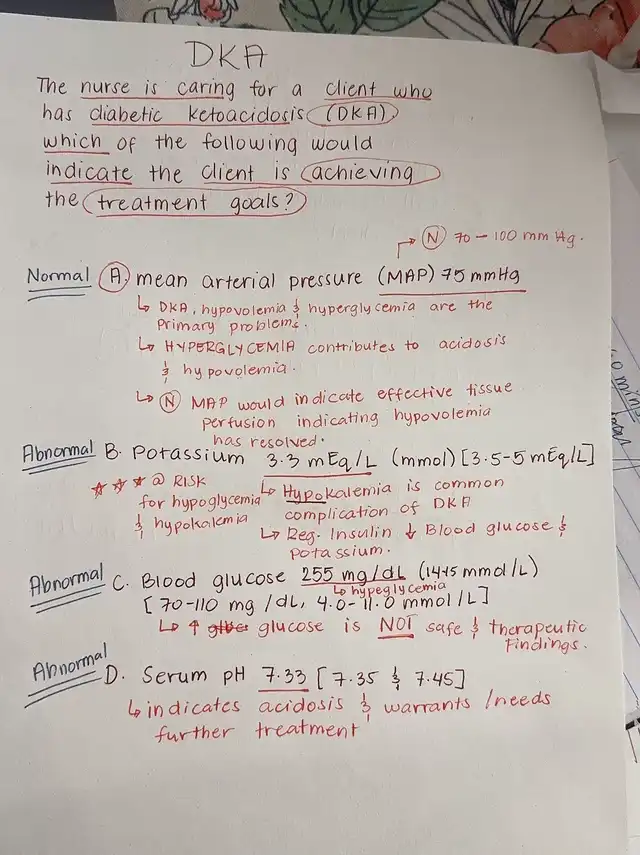 DKA
The nurse is caring for a client who
has diabetic ketoacidosis (DKA)
which of the following would
indicate the client is achieving
the treatment goals?
→ Ⓝ 70 - 100 mm Hg.
Normal A. mean arterial pressure (MAP) 75 mmHg
↳ DKA, hypovolemia & hyperglycemia are the
primary problems.
↳ HYPERGLYCEMIA contributes to acidosis
& hypovolemia.
↳ Ⓝ MAP would indicate effective tissue
perfusion indicating hypovolemia
has resolved.
Abnormal B. Potassium 3.3 mEq/L (mmol) [3.5-5 mEq/L]
★ ★ ★ @ RISK
for hypoglycemia
& hypokalemia
↳ Hypokalemia is common
complication of DKA
↳ Reg. Insulin ↓ Blood glucose &
potassium.
Abnormal C. Blood glucose 255 mg/dL (14.15 mmol/L)
↳ hypeglycemia
[70-110 mg/dL, 4.0-11.0 mmol/L]
↳ ↑ glucose is NOT safe & therapeutic
findings.
Abnormal D. Serum pH 7.33 [7.35 & 7.45]
↳ indicates acidosis & warrants/needs
further treatment